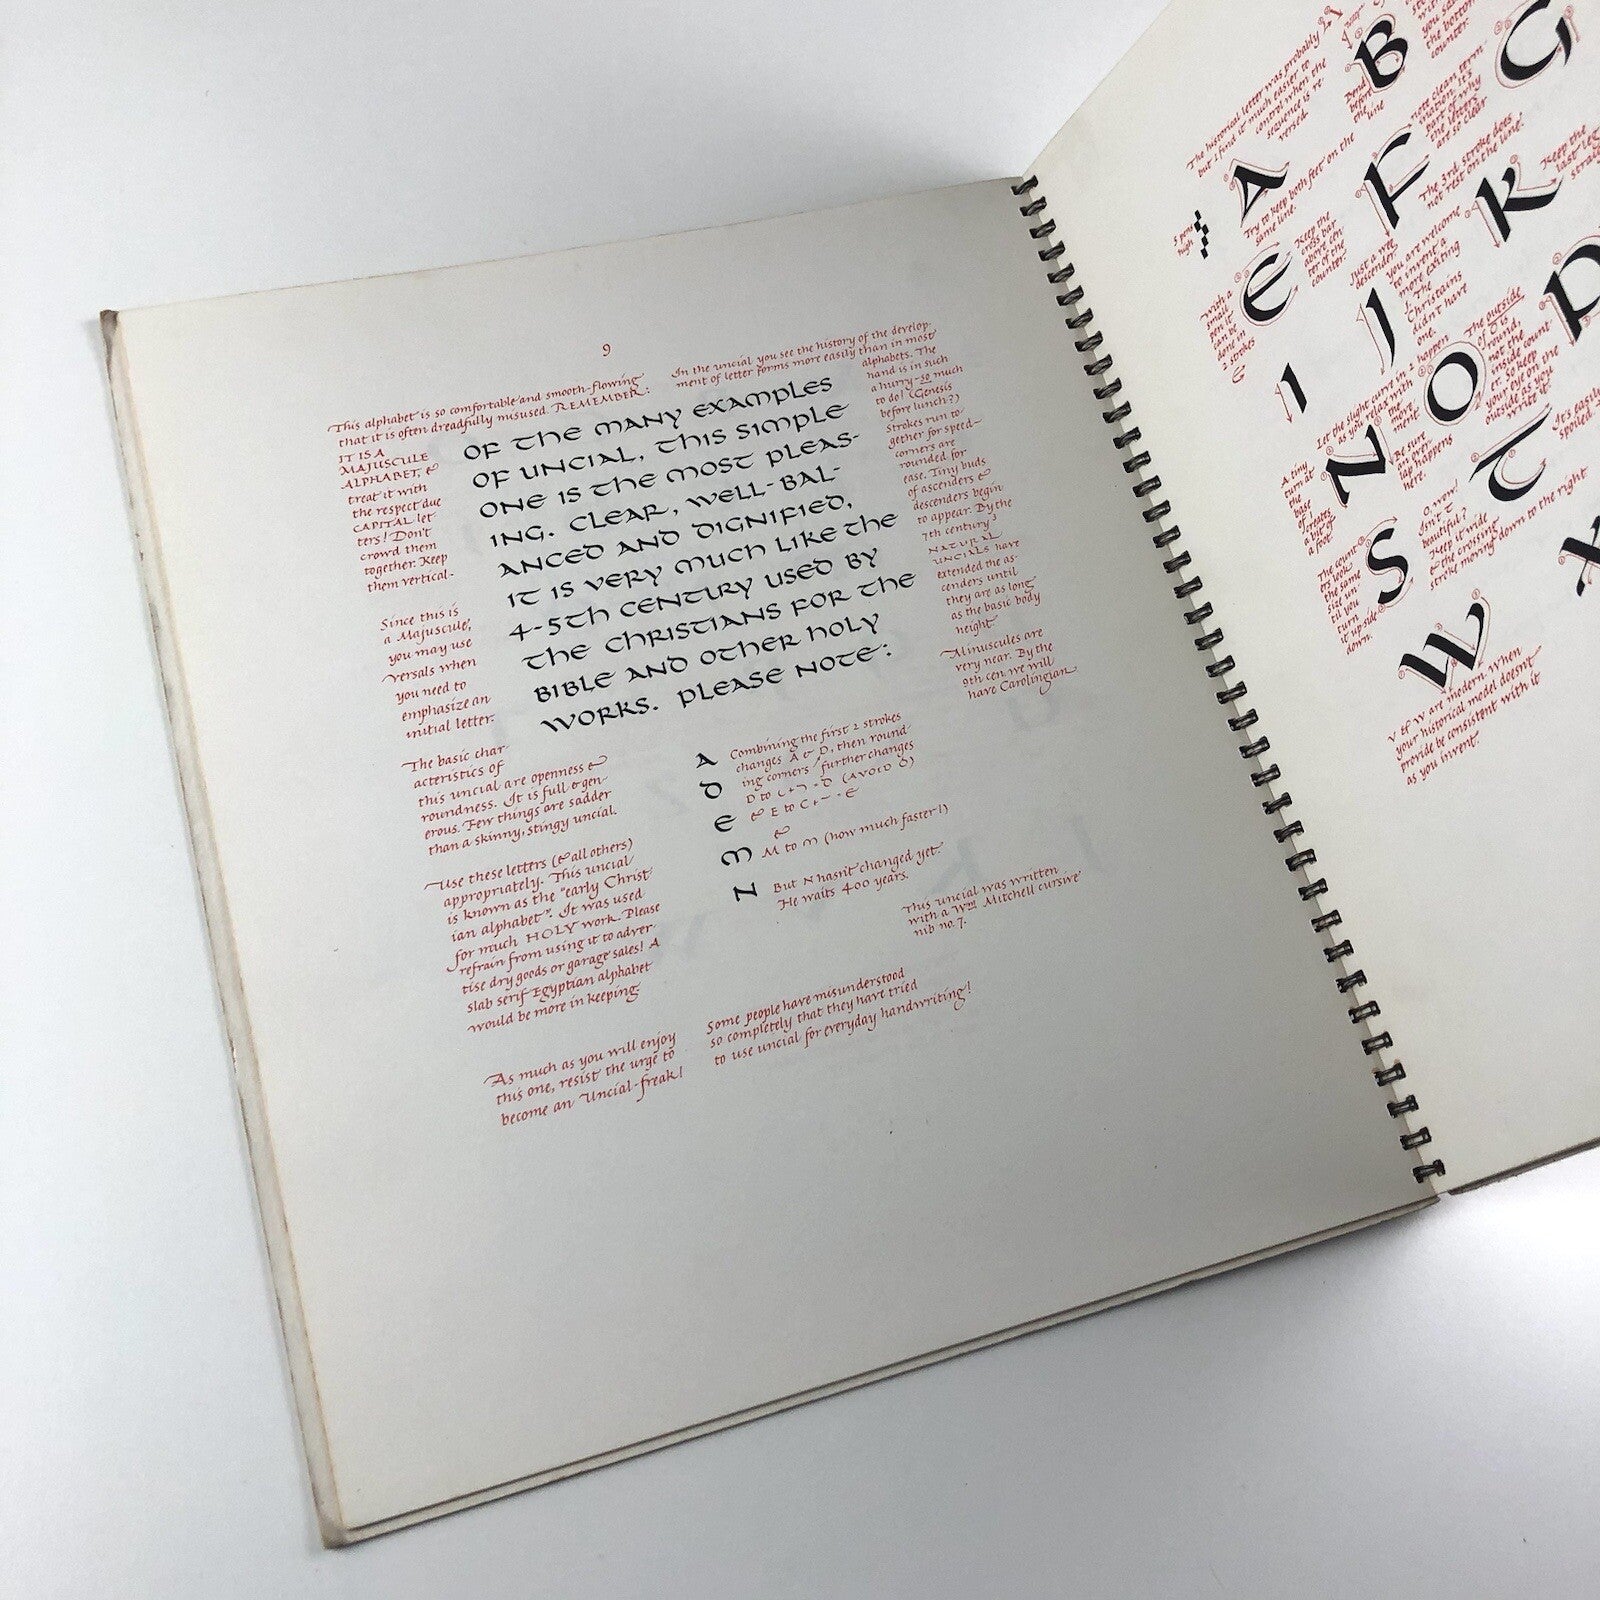 9
This alphabet is so comfortable and smooth-flowing
that it is often dreadfully misused. REMEMBER:
IT IS A
MAJUSCULE
ALPHABET, &
treat it with
the respect due
CAPITAL let
ters! Don't
crowd them
together. Keep
them vertical.
Since this is
a Majuscule,
you may use
versals when
you need to
emphasize an
initial letter.
The basic char-
acteristics of
this uncial are openness &
roundness. It is full & gen-
erous. Few things are sadder
than a skinny, stingy uncial.
Use these letters (& all others)
appropriately. This uncial
is known as the "early Christ
ian alphabet". It was used
for much HOLY work. Please
refrain from using it to adver-
tise dry goods or garage sales! A
slab serif Egyptian alphabet
would be more in keeping
As much as you will enjoy
this one, resist the urge to
become an Uncial-freak!
OF THE MANY EXAMPLES
OF UNCIAL, THIS SIMPLE
ONE IS THE MOST PLEAS-
ING. CLEAR, WELL-BAL-
ANCED AND DIGNIFIED,
IT IS VERY MUCH LIKE THE
4-5TH CENTURY USED BY
THE CHRISTIANS FOR THE
BIBLE AND OTHER HOLY
WORKS. PLEASE NOTE:
In the uncial you see the history of the develop-
ment of letter forms more easily than in most
alphabets. The
hand is in such
a hurry - so much
to do! (Genesis
before lunch?)
Strokes run to-
gether for speed -
corners are
rounded for
ease. Tiny buds
of ascenders &
descenders begin
to appear. By the
7th century
NATURAL
UNCIALS have
extended the as-
cenders until
they are as long
as the basic body
height
Minuscules are
very near. By the
9th cen we will
have Carolingian
A
D
E
M
N
Combining the first 2 strokes
changes A & D, then round-
ing corners further changes
D to
& E to C
&
M to M (how much faster!)
But N hasn't changed yet.
He waits 400 years.
This uncial was written
with a Wm Mitchell cursive
nib no. 7.
Some people have misunderstood
so completely that they have tried
to use uncial for everyday handwriting!
The historical letter was probably
but I find it much easier to
control when the
sequence is re-
versed.
5 pens
high
A
Try to keep both feet on the
same line.
B
Bend
before
the
line
the bottom
counter.
G
With a
small
pen it
can be
done in
2 strokes
E
Keep the
cross bar
above cen-
ter of the
counter.
F
note clean term-
ination. It's
part of why
the letters
are so clear
The 3rd stroke does
not rest on the line.
Just a wee
descender.
I
J
You are welcome
to invent a
more exciting
J. The
Christains
didn't have
one.
K
Keep the
last leg
Let the slight curve on 2 happen
as you relax with
the
move
ment
N
A tiny
turn at
the
base
of 1
creates
a bit of
a foot.
Be sure
the over
lap happens
here.
O
The outside
of O is
round,
not the
inside count
er. So keep
your eye on
the
outside as you
write it!
P
It's easily
spoiled.
S
The count
ers look
the same
size un
til you
turn
it up-side
down.
T
O, wow!
Isn't T
beautiful?
Keep it wide
& the crossing
stroke moving down to the right
W
X
V & W are modern. When
your historical model doesn't
provide be consistent with it
as you invent.